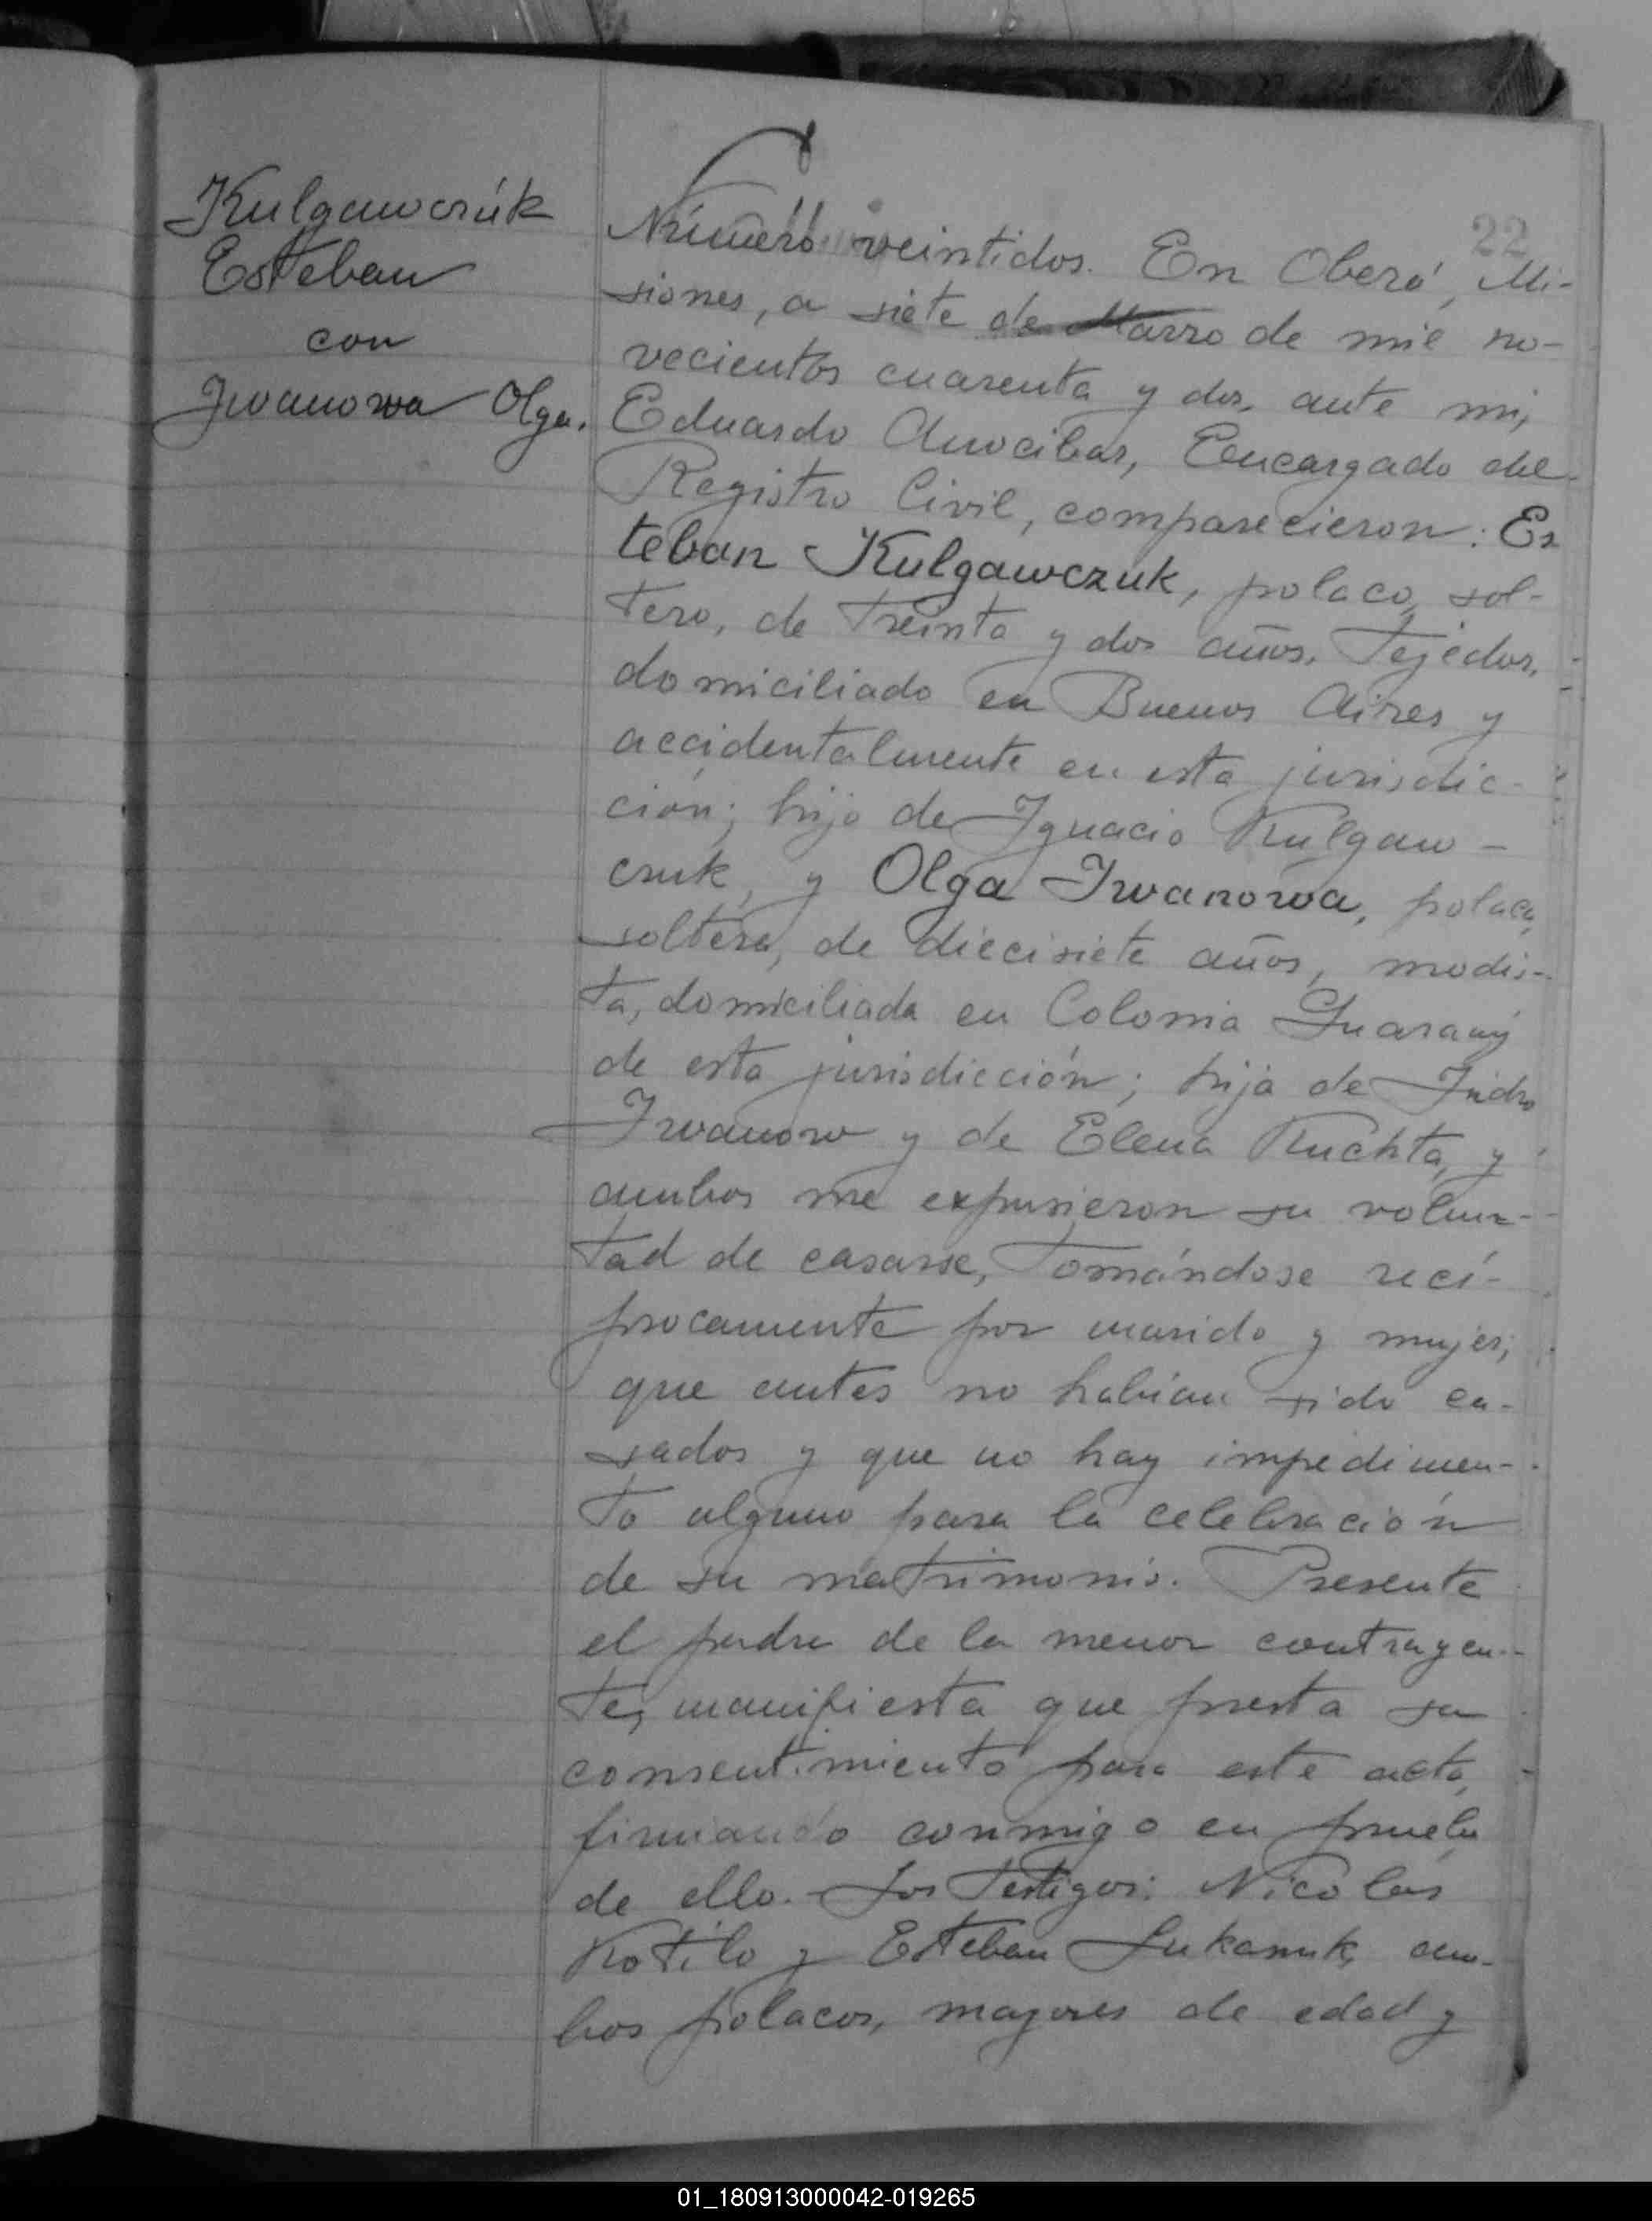 Kulgawczúk
Esteban
con
Iwanowa Olga.
22
Número veintidos. En Oberá, Mi-
siones, a siete de Marzo de mil no-
vecientos cuarenta y dos, ante mi,
Eduardo Arrocibar, Encargado del
Registro Civil, comparecieron: Es
teban Kulgawczuk, polaco, sol-
tero, de treinta y dos años, tejedor,
domiciliado en Buenos Aires y
accidentalmente en esta jurisdic-
ción; hijo de Ignacio Kulgaw-
czuk, y Olga Iwanowa, polaca,
soltera, de diecisiete años, modis-
ta, domiciliada en Colonia Guarany
de esta jurisdicción; hija de
Iwanow y de Elena Kuchta, y
ambos me expusieron su volun-
tad de casarse, tomándose recí-
procamente por marido y mujer;
que antes no habían sido ca-
sados y que no hay impedimen-
to alguno para la celebración
de su matrimonio. Presente
el padre de la menor contrayen-
te, manifiesta que presta su
consentimiento para este acto,
firmando conmigo en prueba
de ello. Los testigos: Nicolás
Kotilo y Esteban Lukasuk, am-
bos polacos, mayores de edad y
01_180913000042-019265